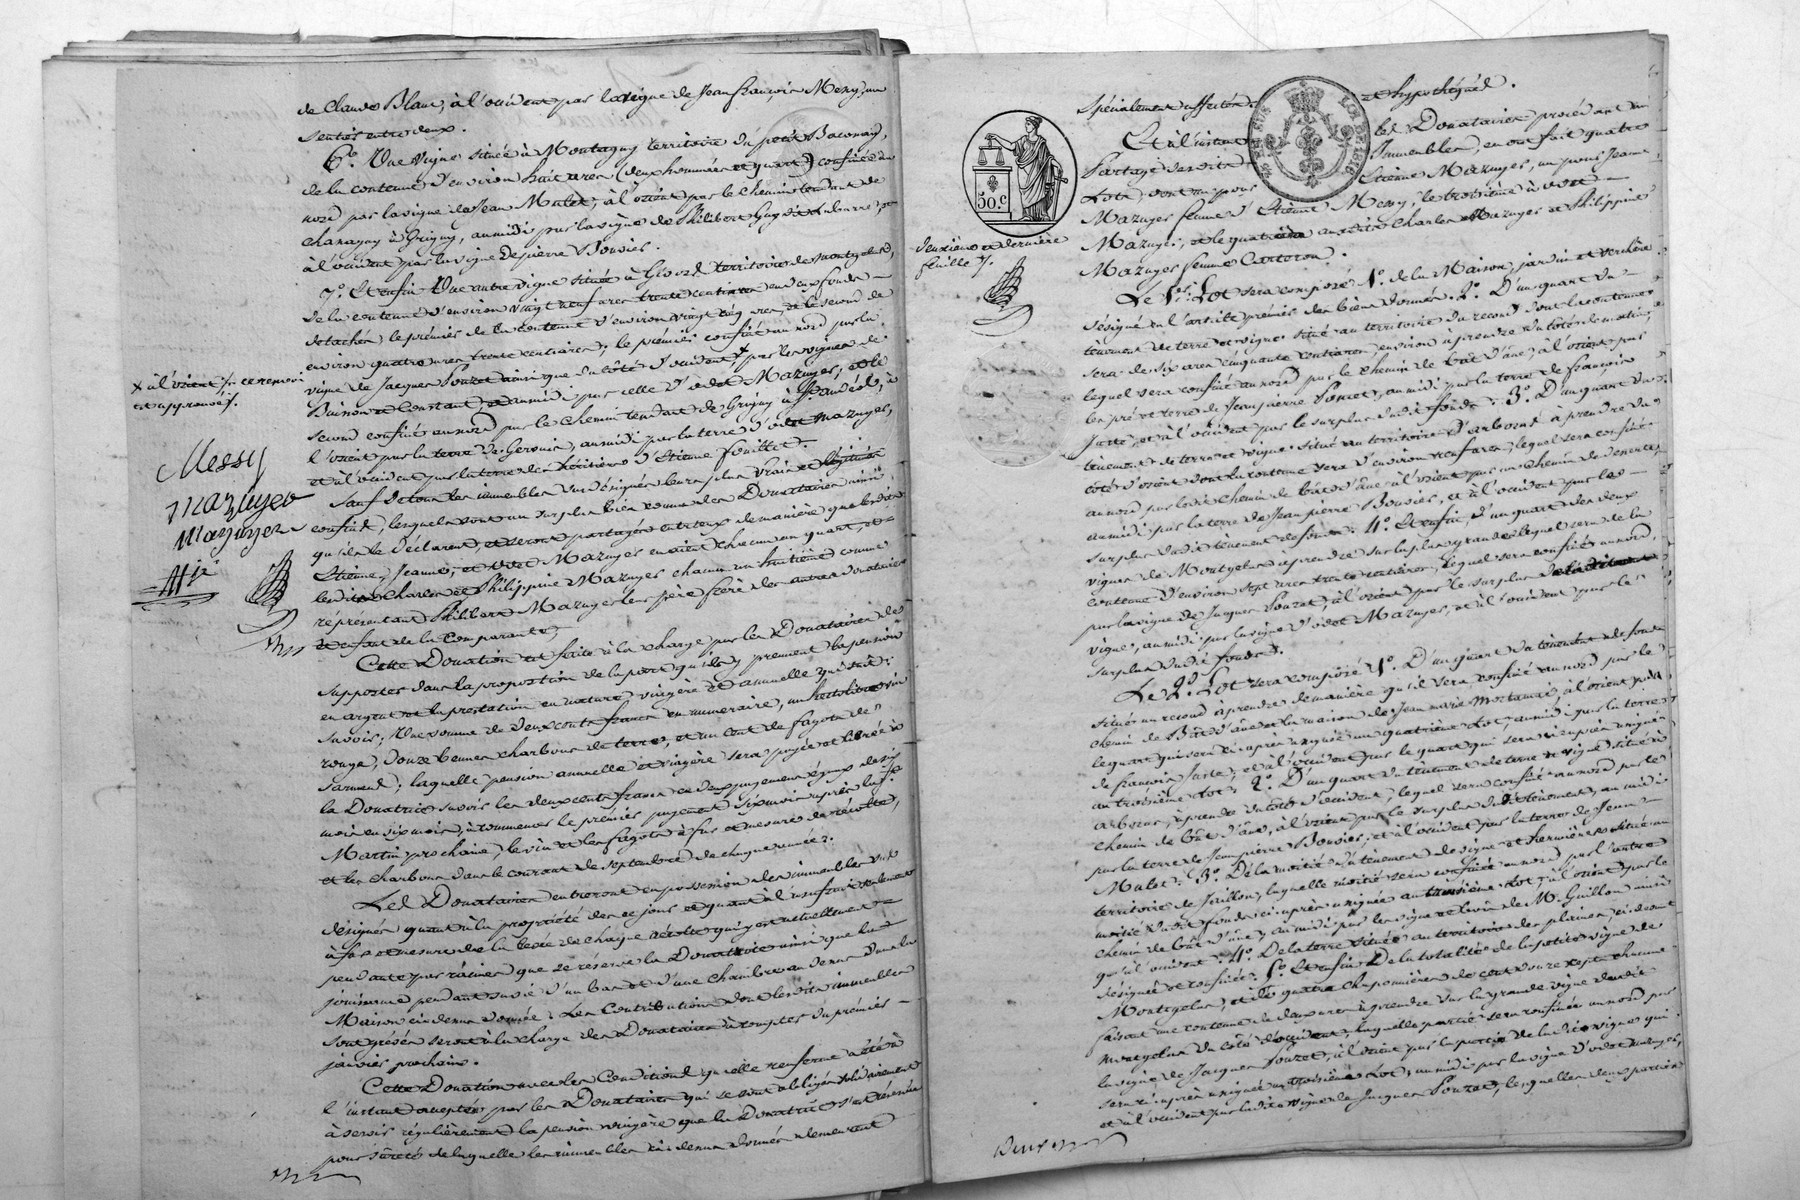 de Claude Blanc, à l'occident par la vigne de Jean françois Messy, un
sentier entre deux.
6.° Une vigne située à Montagny territoire du petit
de la contenue d'environ huit ares (deux hommées et quart) confinée au
nord par la vigne de Jean Mulet, à l'orient par le chemin tendant de
à Grigny, au midi par la vigne de Philibert
à l'occident par la vigne de pierre Bouvier.
7.° Et enfin Une autre vigne située à Givord territoire de montgelas,
de la contenue d'environ vingt neuf ares trente centiares en deux fonds
détachés, le premier de la contenue d'environ vingt cinq ares, et le second de
environ quatre ares trente centiares; le premier confiné au nord par la
vigne de Jacques Pouzet ainsi que du côté d'occident x par les vignes de
et Constant, et au midi par celle d' Mazuyer, et le
second confiné au nord par le chemin tendant de Grigny à St. andéol, à
l'orient par la terre de Gervais, au midi par la terre d' Mazuyer,
et à l'occident par la terre des héritiers d'Etienne fouillet.
x à l'orient /. ce renvoi
est approuvé /.
Messy
Mazuyer
Mazuyer
Sauf de tous les immeubles sus désignés leurs plus vrais et légitimes
confins, lesquels sont au surplus bien connus des Donataires ainsi
qu'ils le déclarent, et seront partagés entr'eux de manière que lesdits
Etienne, Jeanne, et Mazuyer en aient chacun un quart, et
lesdits Charles et Philippine Mazuyer chacun un huitième comme
représentant Philibert Mazuyer leur père frère des autres donataires
et enfant de la Comparante.
Cette Donation est faite à la charge par les Donataires de
supporter dans la proportion de la part qu'ils y prennent la pension
en argent et la prestation en nature, viagère et annuelle qui suit:
savoir; Une somme de deux cents francs en numéraire, un hectolitre vin
rouge, douze bennes charbons de terre, et un cent de fagots de
sarment; laquelle pension annuelle et viagère sera payée et livrée à
la Donatrice savoir les deux cents francs en deux payemens égaux de six
mois en six mois, à commencer le premier payement six mois après la St.
Martin prochaine, le vin et les fagots à fur et mesure de récolte,
et les charbons dans le courant de septembre de chaque année.
Les Donataires entreront en possession des immeubles sus
désignés quant à la propriété dès ce jour et quant à l'usufruit seulement
à fur et mesure de la levée de chaque récolte qui y est actuellement
pendante par racines que se réserve la Donatrice ainsi que la
jouissance pendant sa vie d'un bas et d'une chambre au dessus dans la
Maison ci dessus donnée: Les Contributions dont lesdits immeubles
sont grévés seront à la charge des Donataires à compter du premier
janvier prochain.
Cette Donation avec les Conditions qu'elle renferme a été à
l'instant acceptée par les Donataires qui se sont obligés solidairement
à servir régulièrement la pension viagère que la Donatrice s'est réservée
pour sûreté de laquelle les immeubles ci dessus donnés demeurent
Spécialement affectés et hypothéqués.
LOI DE 1816
50.c
deuxième et dernière
feuille /.
Et à l'instant les Donataires procédant au
Partage desdits Immeubles, en ont fait quatre
Lots, dont un pour Etienne Mazuyer, un pour Jeanne
Mazuyer femme d'Etienne Messy, le troisième à
Mazuyer, et le quatrième auxdits Charles Mazuyer et Philippine
Mazuyer femme Carteron.
Le 1.er Lot sera composé 1.° de la Maison, jardin et verchère
désignés en l'article premier des biens donnés. 2.° D'un quart du
tènement de terre et vigne situé au territoire du recond dont la contenue
sera de six ares cinquante centiares environ à prendre du côté du matin,
lequel sera confiné au nord par le chemin de bât d'âne, à l'orient par
les pré et terre de Jean pierre Poncet, au midi par la terre de françois
Juste, et à l'occident par le surplus dudit fonds: 3.° D'un quart du
tènement de terre et vigne situé au territoire d'arboras à prendre du
côté d'orient dont la contenue sera d'environ neuf ares, lequel sera confiné
au nord par ledit chemin de bât d'âne à l'orient par un chemin de desserte,
au midi par la terre de Jean pierre Bouvier, et à l'occident par le
surplus dudit tènement de fonds: 4.° Et enfin, d'un quart des deux
vignes de Montgelas à prendre sur la plus grande lequel sera de la
contenue d'environ sept ares trente centiares, lequel sera confiné au nord,
par la vigne de Jacques Pouzet, à l'orient par le surplus de ladite
vigne, au midi par la vigne d' Mazuyer, et à l'occident par le
surplus dudit fonds.
Le 2.d Lot sera composé 1.° D'un quart du tènement de fonds
situé au recond à prendre de manière qu'il sera confiné au nord par le
chemin de Bât d'âne et la maison de Jean marie, à l'orient par
le quart qui sera ci après assigné au quatrième Lot, au midi par la terre
de françois Juste, et à l'occident par le quart qui sera ci après assigné
au troisième Lot: 2.° D'un quart du tènement de terre et vigne situé à
arboras, à prendre du côté d'occident, lequel sera confiné au nord par le
chemin de bât d'âne, à l'orient par le surplus dudit tènement, au midi
par la terre de Jean pierre Bouvier, et à l'occident par la terre de Jean
Mulet: 3.° De la moitié du tènement de vigne et hermières situé au
territoire de, laquelle moitié sera confinée au nord par l'autre
moitié dudit fonds ci après assignée au troisième Lot, à l'orient par le
chemin de bât d'âne, au midi par les vigne et bois de M. Guillon ainsi
qu'à l'occident: 4.° De la terre située au territoire des plaines, ci dessus
désignée et confinée: 5.° Et enfin De la totalité de la petite vigne de
Montgelas, et de quatre de cent douze ceps chacune
faisant une contenue de deux ares à prendre sur la grande vigne dudit
Montgelas du côté d'occident, laquelle partie sera confinée au nord par
la vigne de Jacques Pouzet, à l'orient par la partie de ladite vigne qui
sera ci après assignée au troisième Lot, au midi par la vigne d' Mazuyer,
et à l'occident par ladite vigne de Jacques Pouzet, lesquelles deux parties